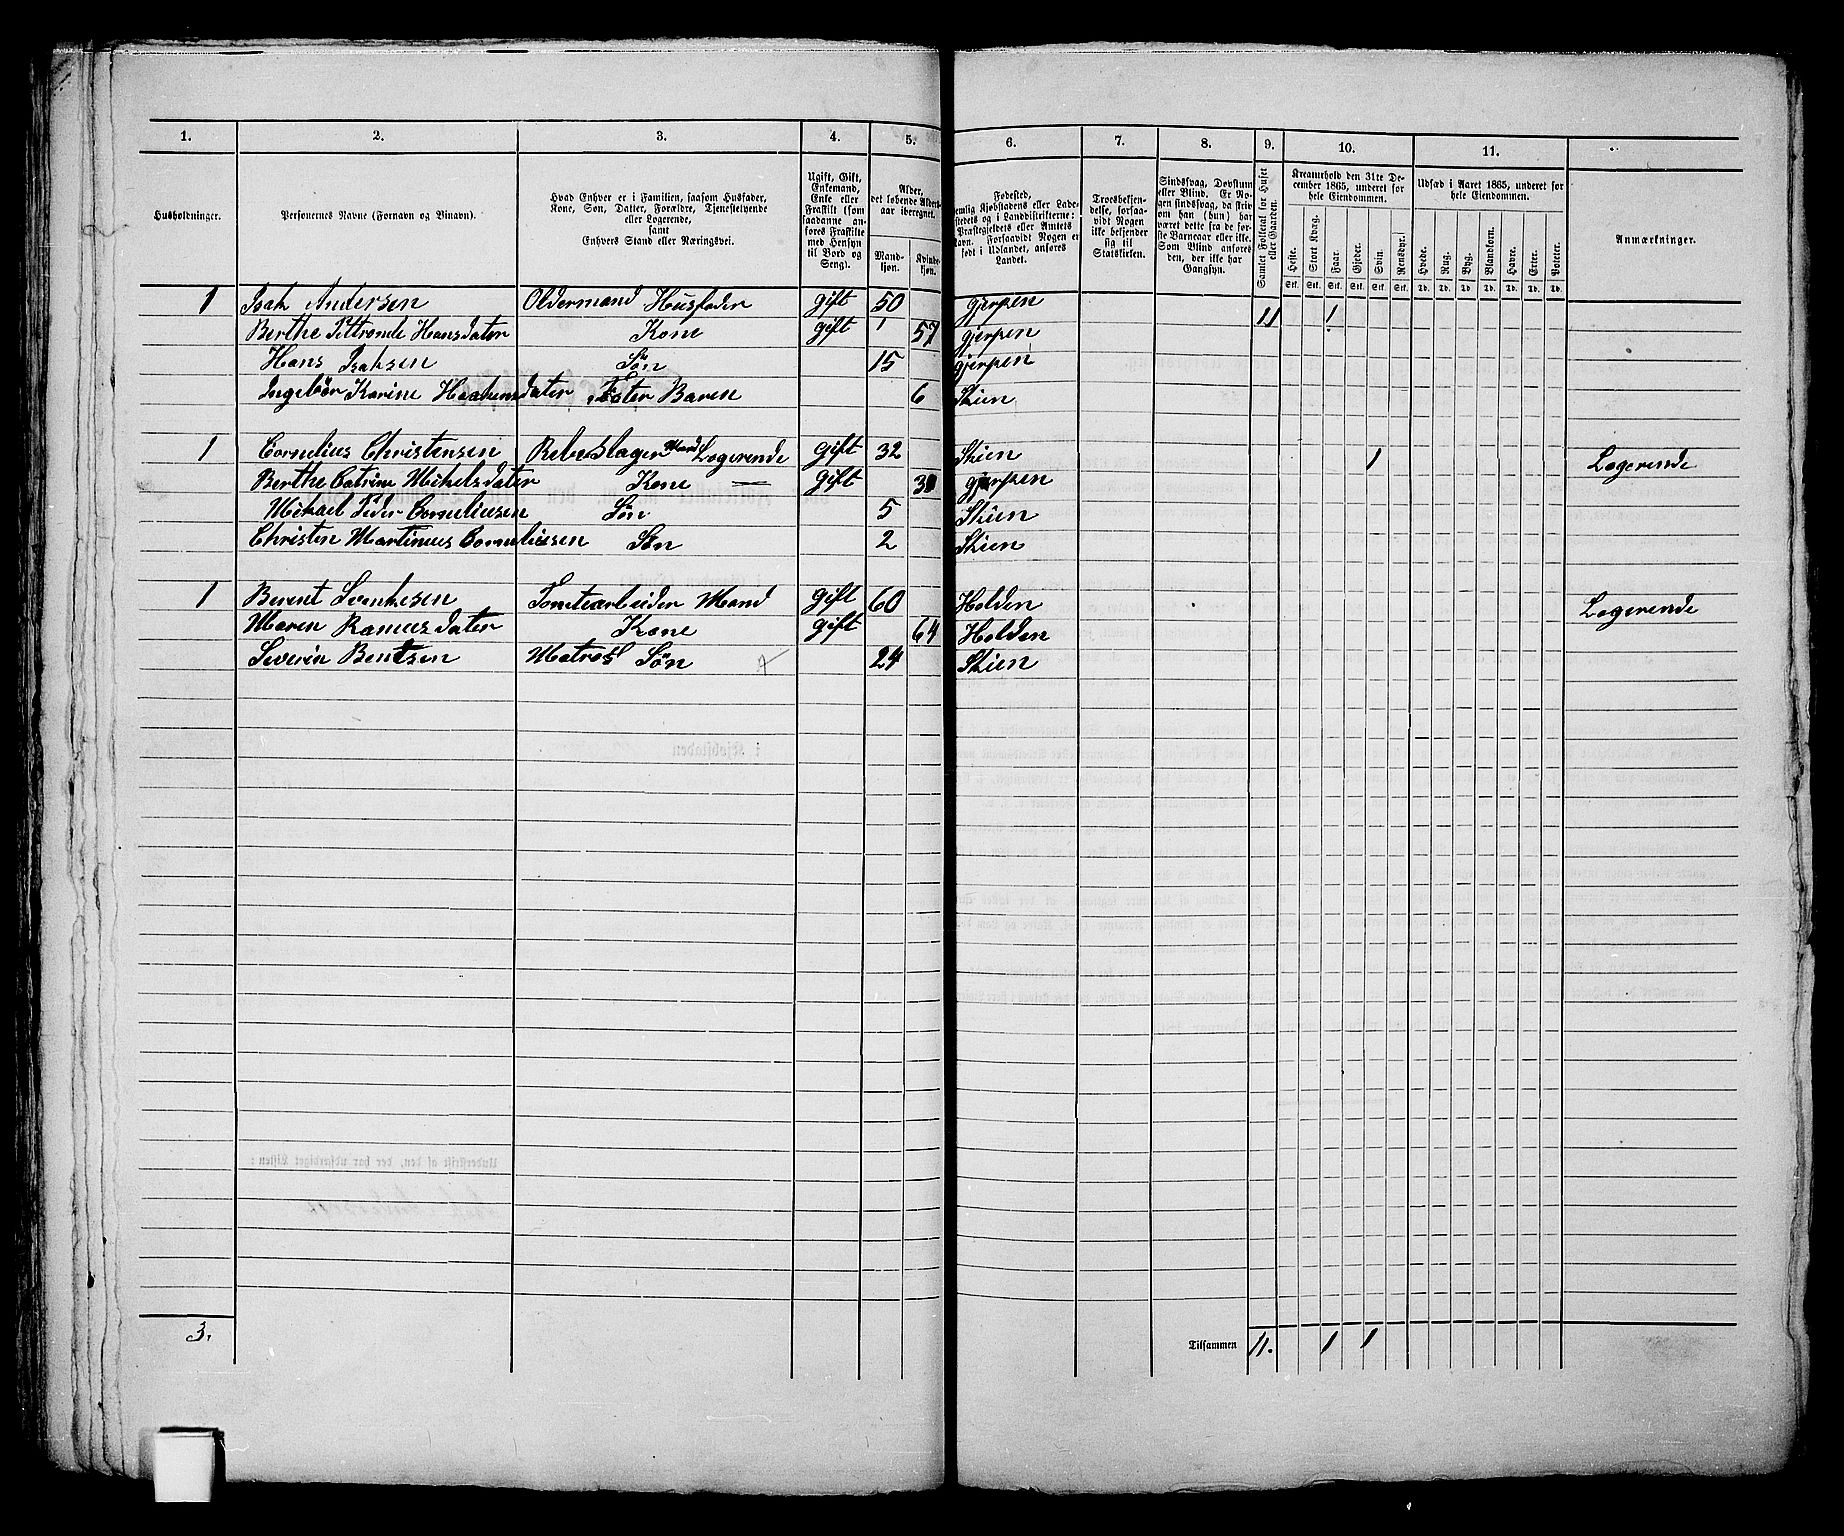 1. 2. 3. 4. 5. 6. 7. 8. 9. 10. 11.
Husholdninger.
Personernes Navne (Fornavn og Binavn).
Hvad Enhver er i Familien, saasom Husfader,
Kone, Søn, Datter, Forældre, Tjenestetyende
eller Logerende,
samt
Enhvers Stand eller Næringsvei.
Ugift, Gift,
Enkemand,
Enke eller
Fraskilt (som
saadanne an-
føres Fraskilte
med Hensyn
til Bord og
Seng).
Alder,
det løbende Alders-
aar iberegnet.
Mand-
kjøn.
Kvinde-
kjøn.
Fødested,
nemlig Kjøbstadens eller Lade-
stedets og i Landdistrikterne:
Præstegjeldets eller Amtets
Navn. Forsaavidt Nogen er
født i Udlandet, anføres
Landet.
Troesbekjen-
delse, forsaa-
vidt Nogen
ikke bekjender
sig til
Statskirken.
Sindssvag, Døvstum
eller Blind. Er No-
gen sindssvag, da skriv
om han (hun) har
været dette fra de før-
ste Barneaar eller ikke.
Som Blind anføres
den, der ikke har
Gangsyn.
Samlet Folketal for Huset
eller Gaarden.
Kreaturhold den 31te De-
cember 1865, underet for
hele Eiendommen.
Heste. Stort Kvæg. Faar. Gjeder. Svin. Rensdyr.
Stk. Stk. Stk. Stk. Stk. Stk.
Udsæd i Aaret 1865, underet for
hele Eiendommen.
Hvede. Rug. Byg. Blandkorn. Havre. Erter. Poteter.
Td. Td. Td. Td. Td. Td. Td.
Anmærkninger.
1 Isak Andersen Oldermand Husfader gift 50 gjerpen
Berthe Pittronde Hansdater Kone gift 57 gjerpen 11 1
Hans Isaksen Søn 15 gjerpen
Ingebør Karine Haakensdater Baren 6 Skien
1 Cornelius Christensen Rebeslager Mand Logerende gift 32 Skien 1 Logerende
Berthe Catrine Mikelsdater Kone — gift gjerpen
Mikael Peder Corneliusen Søn 5 Skien
Christen Martinius Corneliusen Søn 2 Skien
1 Berent Svenkesen Tomtearbeider Mand gift 60 Holden Logerende
Maren Rasmusdater Kone gift 64 Holden
Severin Bentsen Matros Søn 24 Skien
3. Tilsammen 11. 1 1